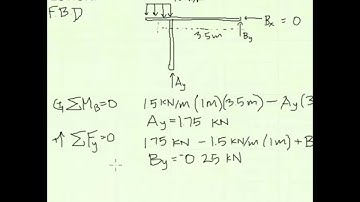 F.B.D
Bx = 0
3.5m
By
Ay
↺ ΣM_B=0 1.5 kN/m (1m)(3.5m) - Ay(3
Ay = 1.75 kN
+↑ ΣFy=0 1.75 kN - 1.5 kN/m (1m) + B
By = -0.25 kN